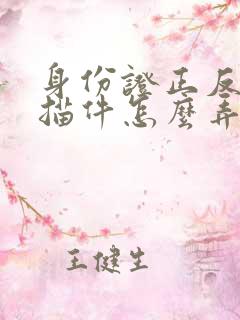 身份證正反
描件怎麼弄
王健生